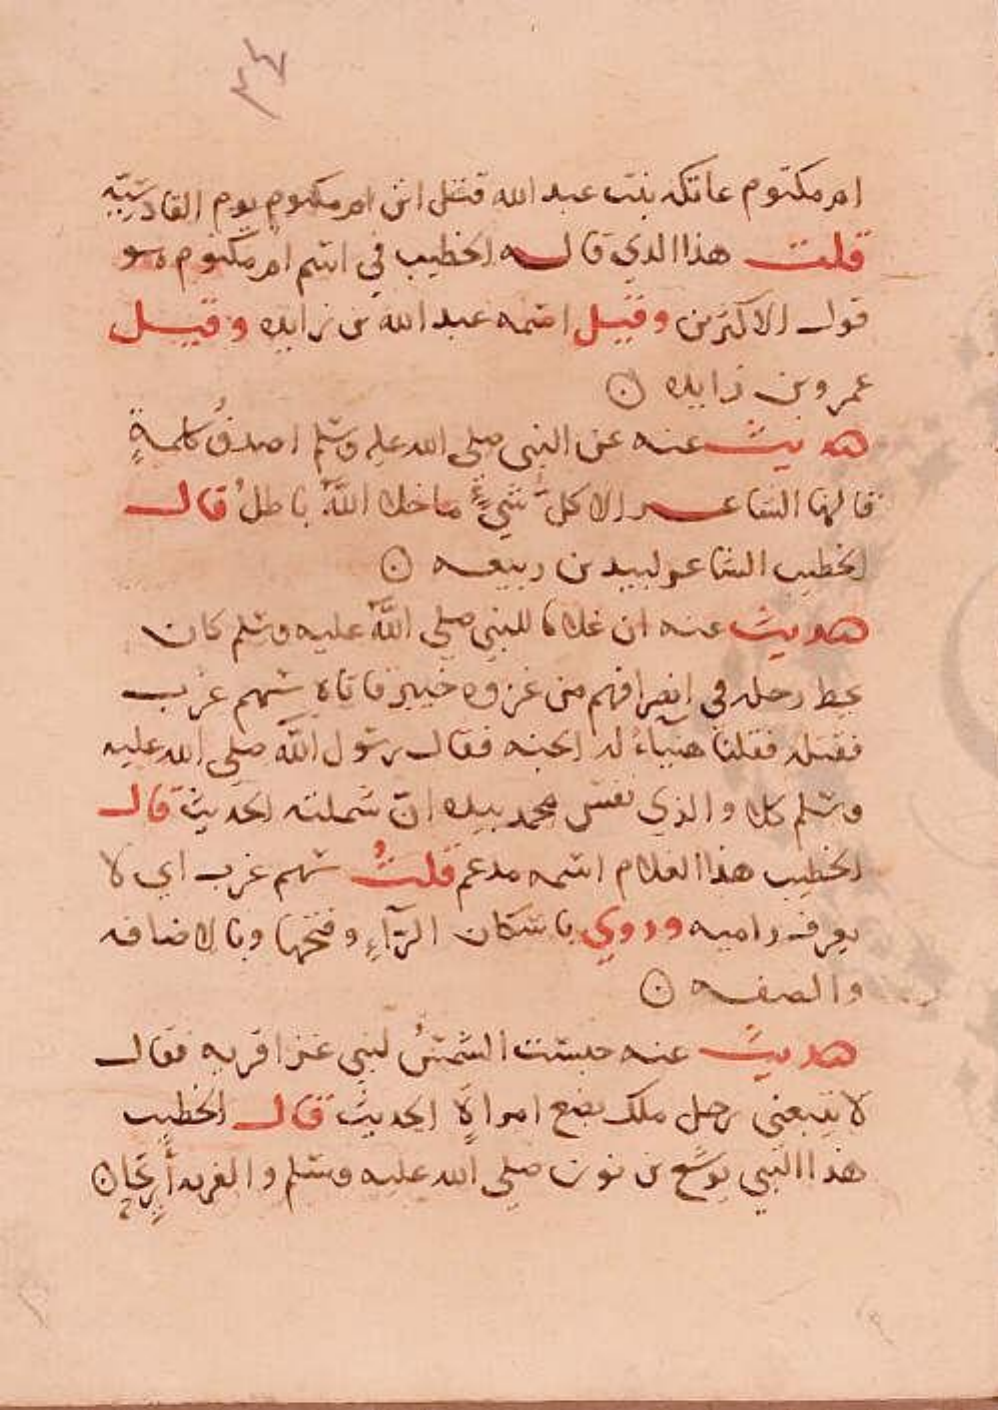 ٣٤
ام مكتوم عاتكه بنت عبد الله قتل ابن ام مكتوم يوم القادسيّه
قلت هذا الذي قاله الخطيب في اسم ام مكتوم هو
قول الاكثرين وقيل اسمه عبد الله بن زايده وقيل
عمرو بن زايده
حديث عنه عن النبي صلى الله عليه وسلم اصدقُ كلمةٍ
قالها الشاعر الا كلُّ شيءٍ ما خلا اللهَ باطلُ قال
الخطيب الشاعر لبيد بن ربيعه
حديث عنه ان غلاما للنبي صلي اللهَ عليه وسلم كان
يحط رحله في انصرافهم من غزوه خيبر فاتاه سهم غرب
فقتله فقلنا هنياءً له الجنه فقال رسول اللهَ صلي الله عليه
وسلم كلا والذي نفس محمد بيده انّ شملته الحديث قال
الخطيب هذا الغلام اسمه مدعم قلتُ سهم غرب اي لا
يعرف راميه وروي باسكان الرّآءِ وفتحها وبالاضافه
والصفه
حديث عنه حبست الشمسُ لنبي غزا قريه فقال
لا يتبعني رجل ملك بضع امراةٍ الحديث قال الخطيب
هذا النبي يوشع بن نون صلي الله عليه وسلم والقريه أرِيحا